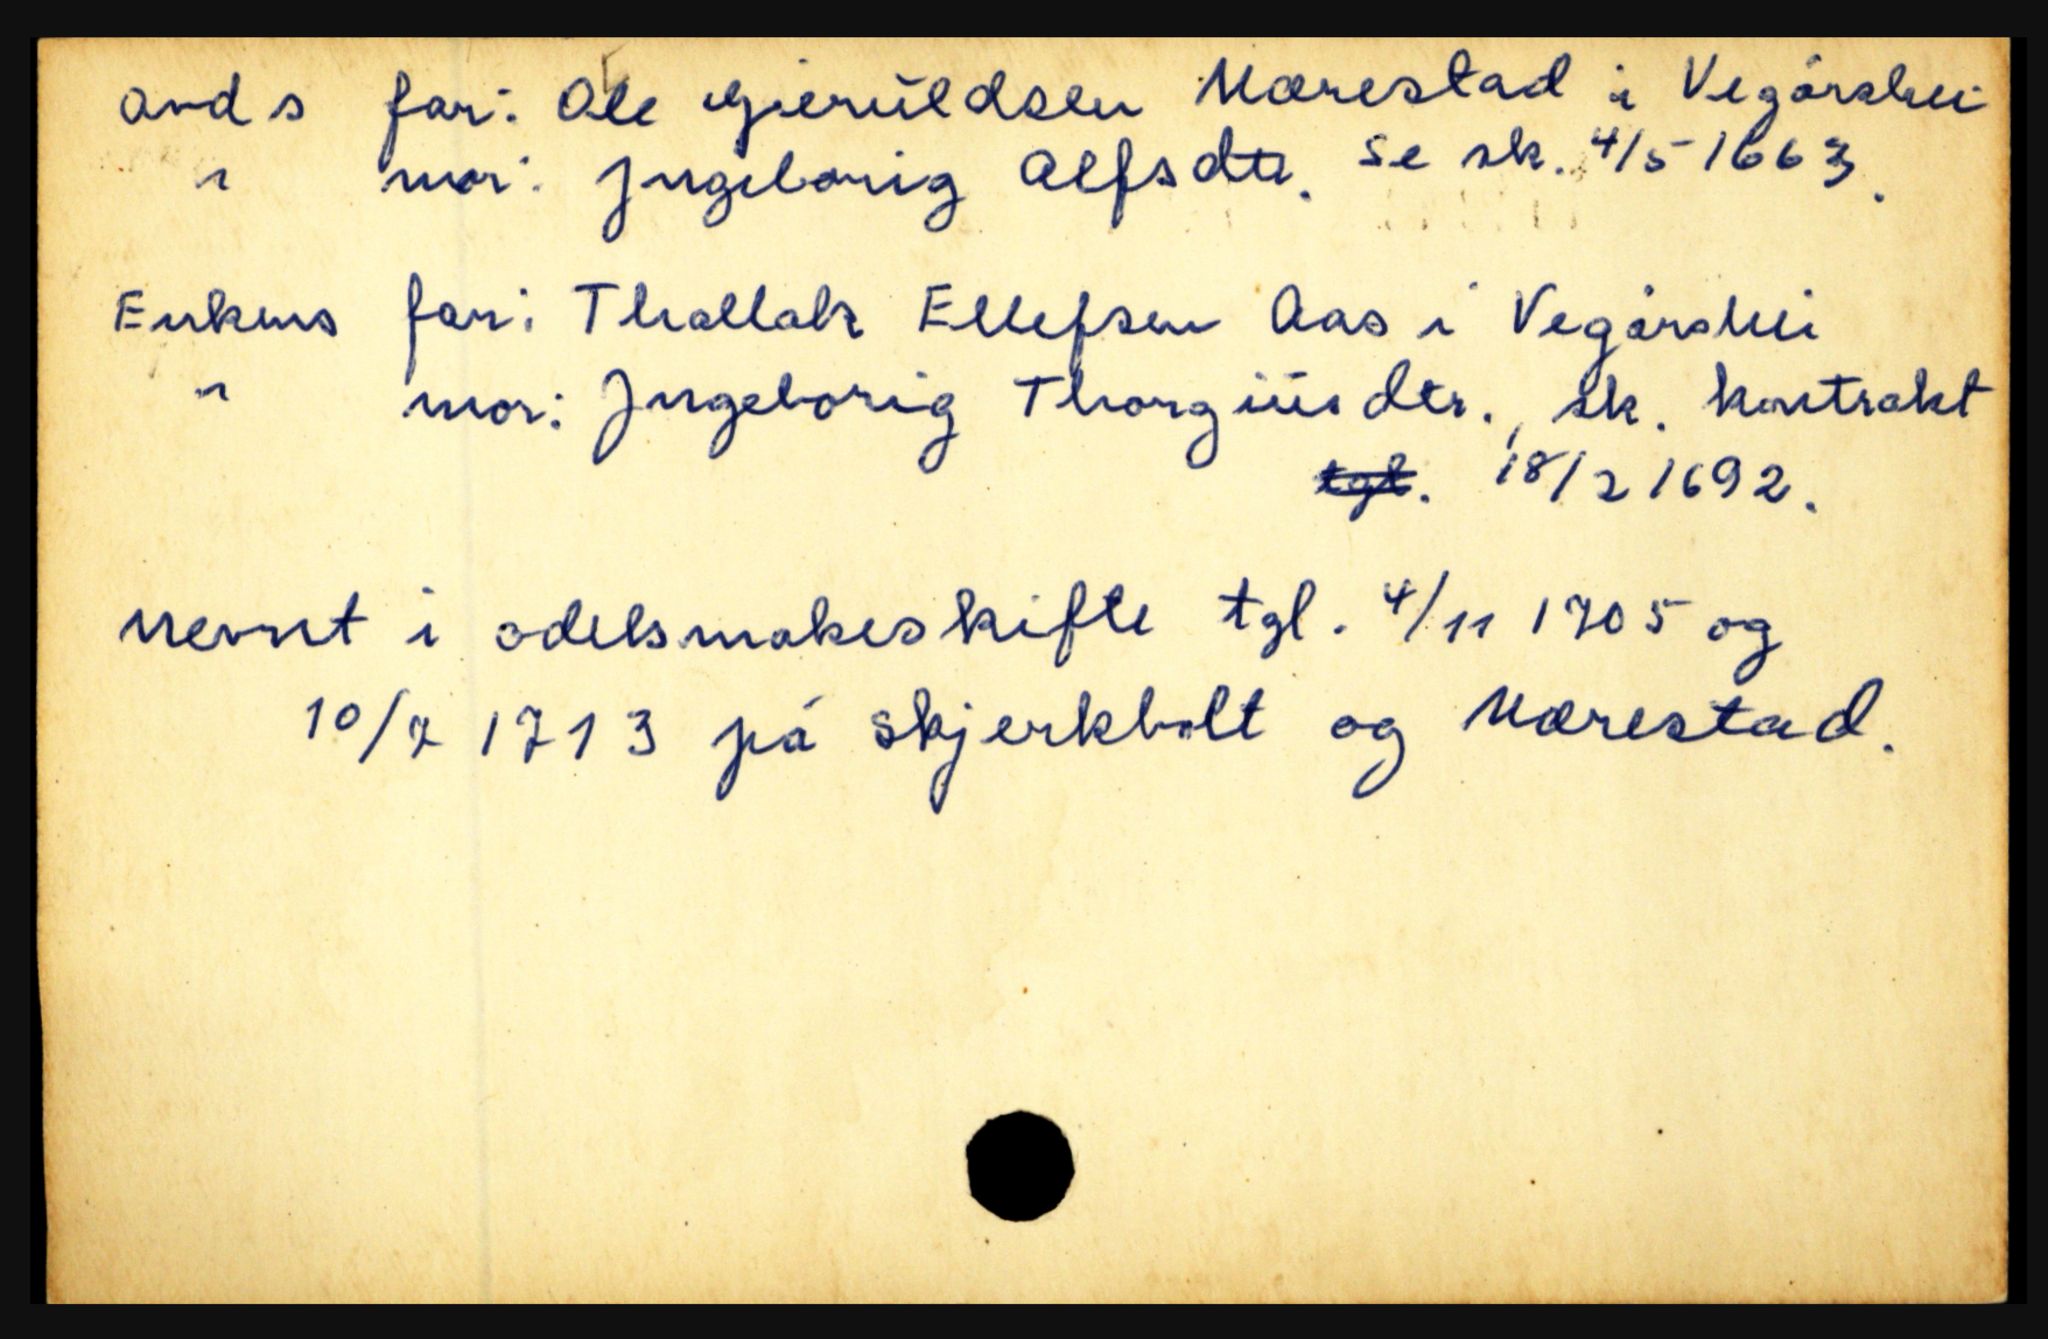 avds far: Ole Gjeruldsen Mørestad i Vegårshei
" mor: Jngeborig Alfsdtr. Se sk. 4/5 1663.
Enkens far: Thallak Ellefsen Aas i Vegårshei
" mor: Jngeborig Thorgiüsdtr., sk. kontrakt
tgl. 18/2 1692.
Nevnt i odelsmakeskifte tgl. 4/11 1705 og
10/7 1713 på Skjerkholt og Mørestad.